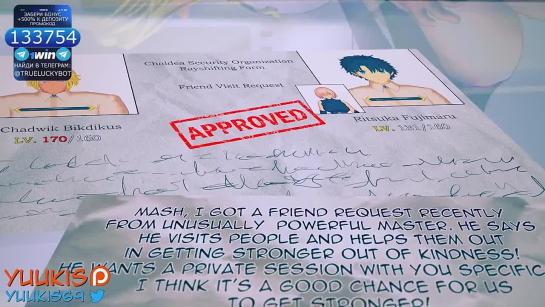 ЗАБЕРИ БОНУС
+500% К ДЕПОЗИТУ
ПРОМОКОД
133754
1win
НАЙДИ В ТЕЛЕГРАМ:
@TRUELUCKYBOT
Chaldea Security Organization
Rayshifting Form
Friend Visit Request
APPROVED
Chadwik Bikdikus
LV. 170/160
Ritsuka Fujimaru
LV. 131/160
MASH, I GOT A FRIEND REQUEST RECENTLY
FROM UNUSUALLY POWERFUL MASTER. HE SAYS
HE VISITS PEOPLE AND HELPS THEM OUT
IN GETTING STRONGER OUT OF KINDNESS!
HE WANTS A PRIVATE SESSION WITH YOU SPECIFIC
I THINK IT'S A GOOD CHANCE FOR US
TO GET STRONGER!
YUUKIS
YUUKIS69